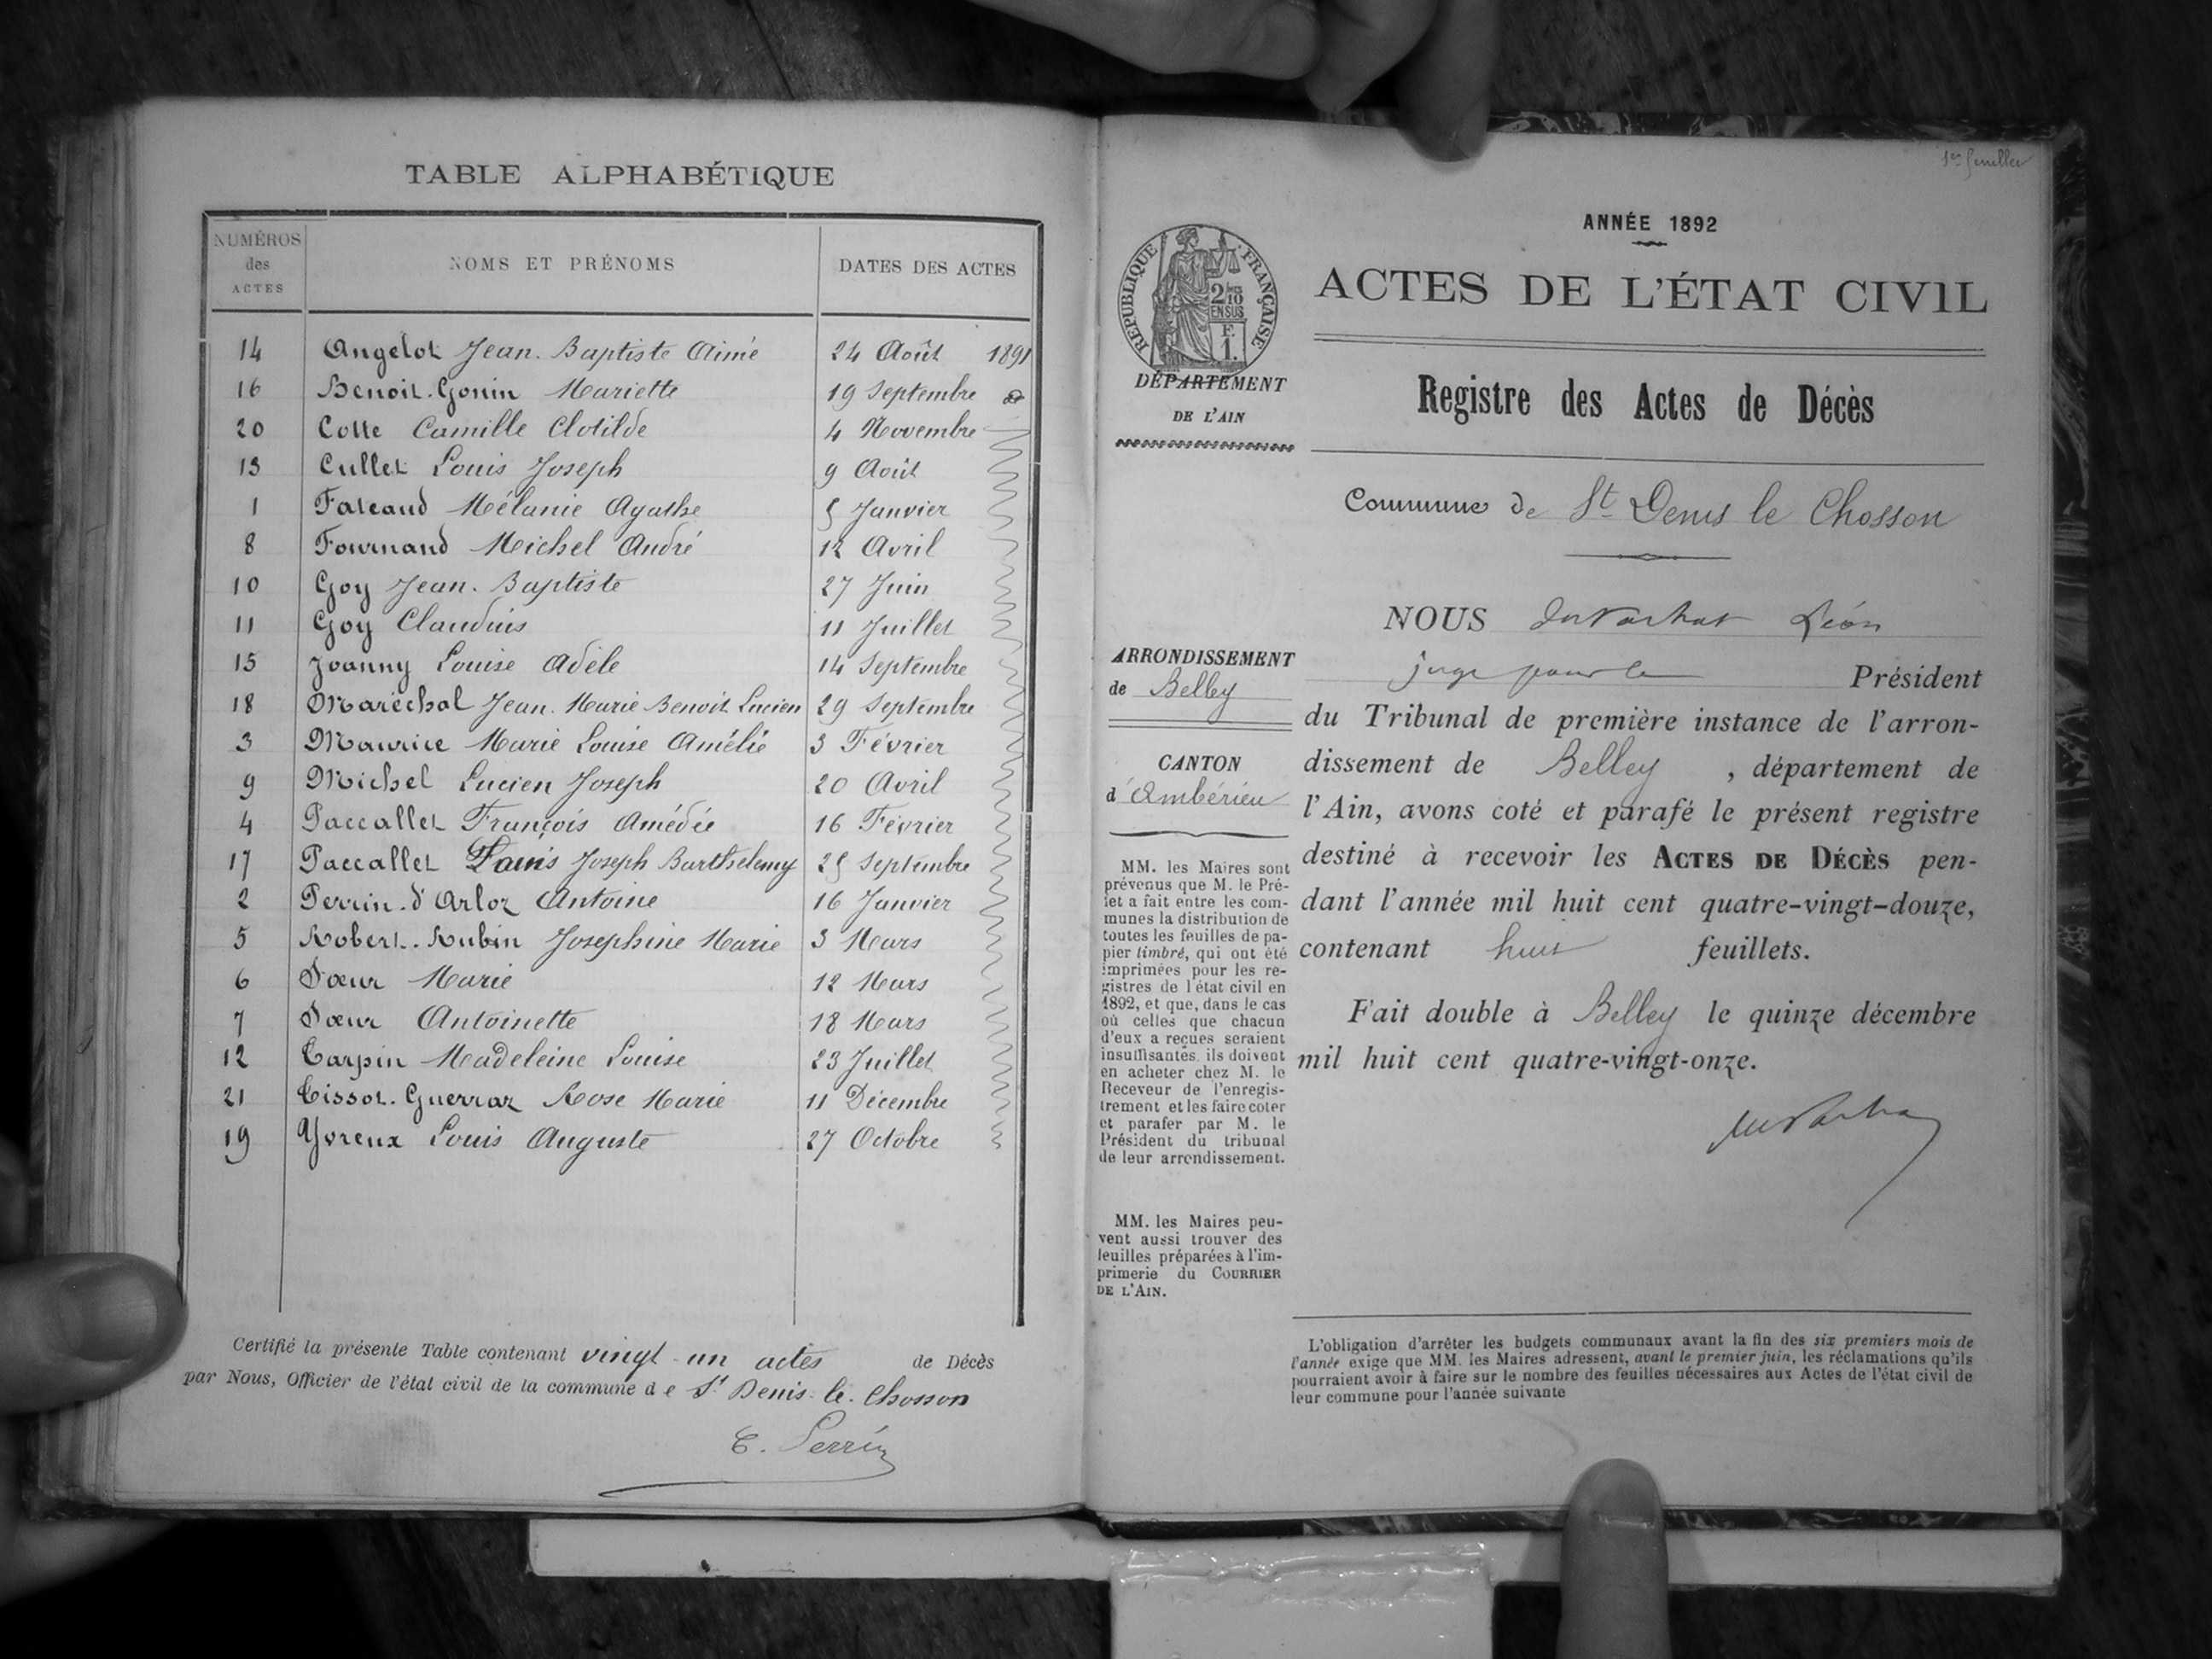 TABLE ALPHABÉTIQUE
NUMÉROS des ACTES NOMS ET PRÉNOMS DATES DES ACTES
14 Angelot Jean-Baptiste Aimé 24 Août 1891
16 Benoit-Gonin Mariette 19 Septembre
20 Cotte Camille Clotilde 4 Novembre
13 Cullet Louis Joseph 9 Août
1 Falcand Mélanie Agathe 5 Janvier
8 Fournand Michel André 12 Avril
10 Goy Jean-Baptiste 27 Juin
11 Goy Claudius 11 Juillet
15 Joanny Louise Adèle 14 Septembre
18 Maréchal Jean Marie Benoit Lucien 29 Septembre
3 Maurice Marie Louise Amélie 3 Février
9 Michel Lucien Joseph 20 Avril
4 Paccallet François Amédée 16 Février
17 Paccallet Louis Joseph Barthelemy 25 Septembre
2 Perrin-d'Arloz Antoine 16 Janvier
5 Robert-Rubin Josephine Marie 3 Mars
6 Sœur Marie 12 Mars
7 Sœur Antoinette 18 Mars
12 Carpin Madeleine Louise 23 Juillet
21 Tissot-Guerraz Rose Marie 11 Décembre
19 Yvreux Louis Auguste 27 Octobre
Certifié la présente Table contenant vingt-un actes de Décès
par Nous, Officier de l'état civil de la commune de St Denis-le-Chosson
C. Perrin
1er feuillet
ANNÉE 1892
ACTES DE L'ÉTAT CIVIL
RÉPUBLIQUE FRANÇAISE
2/10 EN SUS
F. 1.
DÉPARTEMENT
DE L'AIN
Registre des Actes de Décès
Commune de St Denis le Chosson
ARRONDISSEMENT
de Belley
CANTON
d'Ambérieu
MM. les Maires sont
prévenus que M. le Pré-
fet a fait entre les com-
munes la distribution de
toutes les feuilles de pa-
pier timbré, qui ont été
imprimées pour les re-
gistres de l'état civil en
1892, et que, dans le cas
où celles que chacun
d'eux a reçues seraient
insuffisantes, ils doivent
en acheter chez M. le
Receveur de l'enregis-
trement et les faire coter
et parafer par M. le
Président du tribunal
de leur arrondissement.
MM. les Maires peu-
vent aussi trouver des
feuilles préparées à l'im-
primerie du COURRIER
DE L'AIN.
NOUS Léon
juge pour le Président
du Tribunal de première instance de l'arron-
dissement de Belley, département de
l'Ain, avons coté et parafé le présent registre
destiné à recevoir les ACTES DE DÉCÈS pen-
dant l'année mil huit cent quatre-vingt-douze,
contenant huit feuillets.
Fait double à Belley le quinze décembre
mil huit cent quatre-vingt-onze.
L'obligation d'arrêter les budgets communaux avant la fin des six premiers mois de
l'année exige que MM. les Maires adressent, avant le premier juin, les réclamations qu'ils
pourraient avoir à faire sur le nombre des feuilles nécessaires aux Actes de l'état civil de
leur commune pour l'année suivante